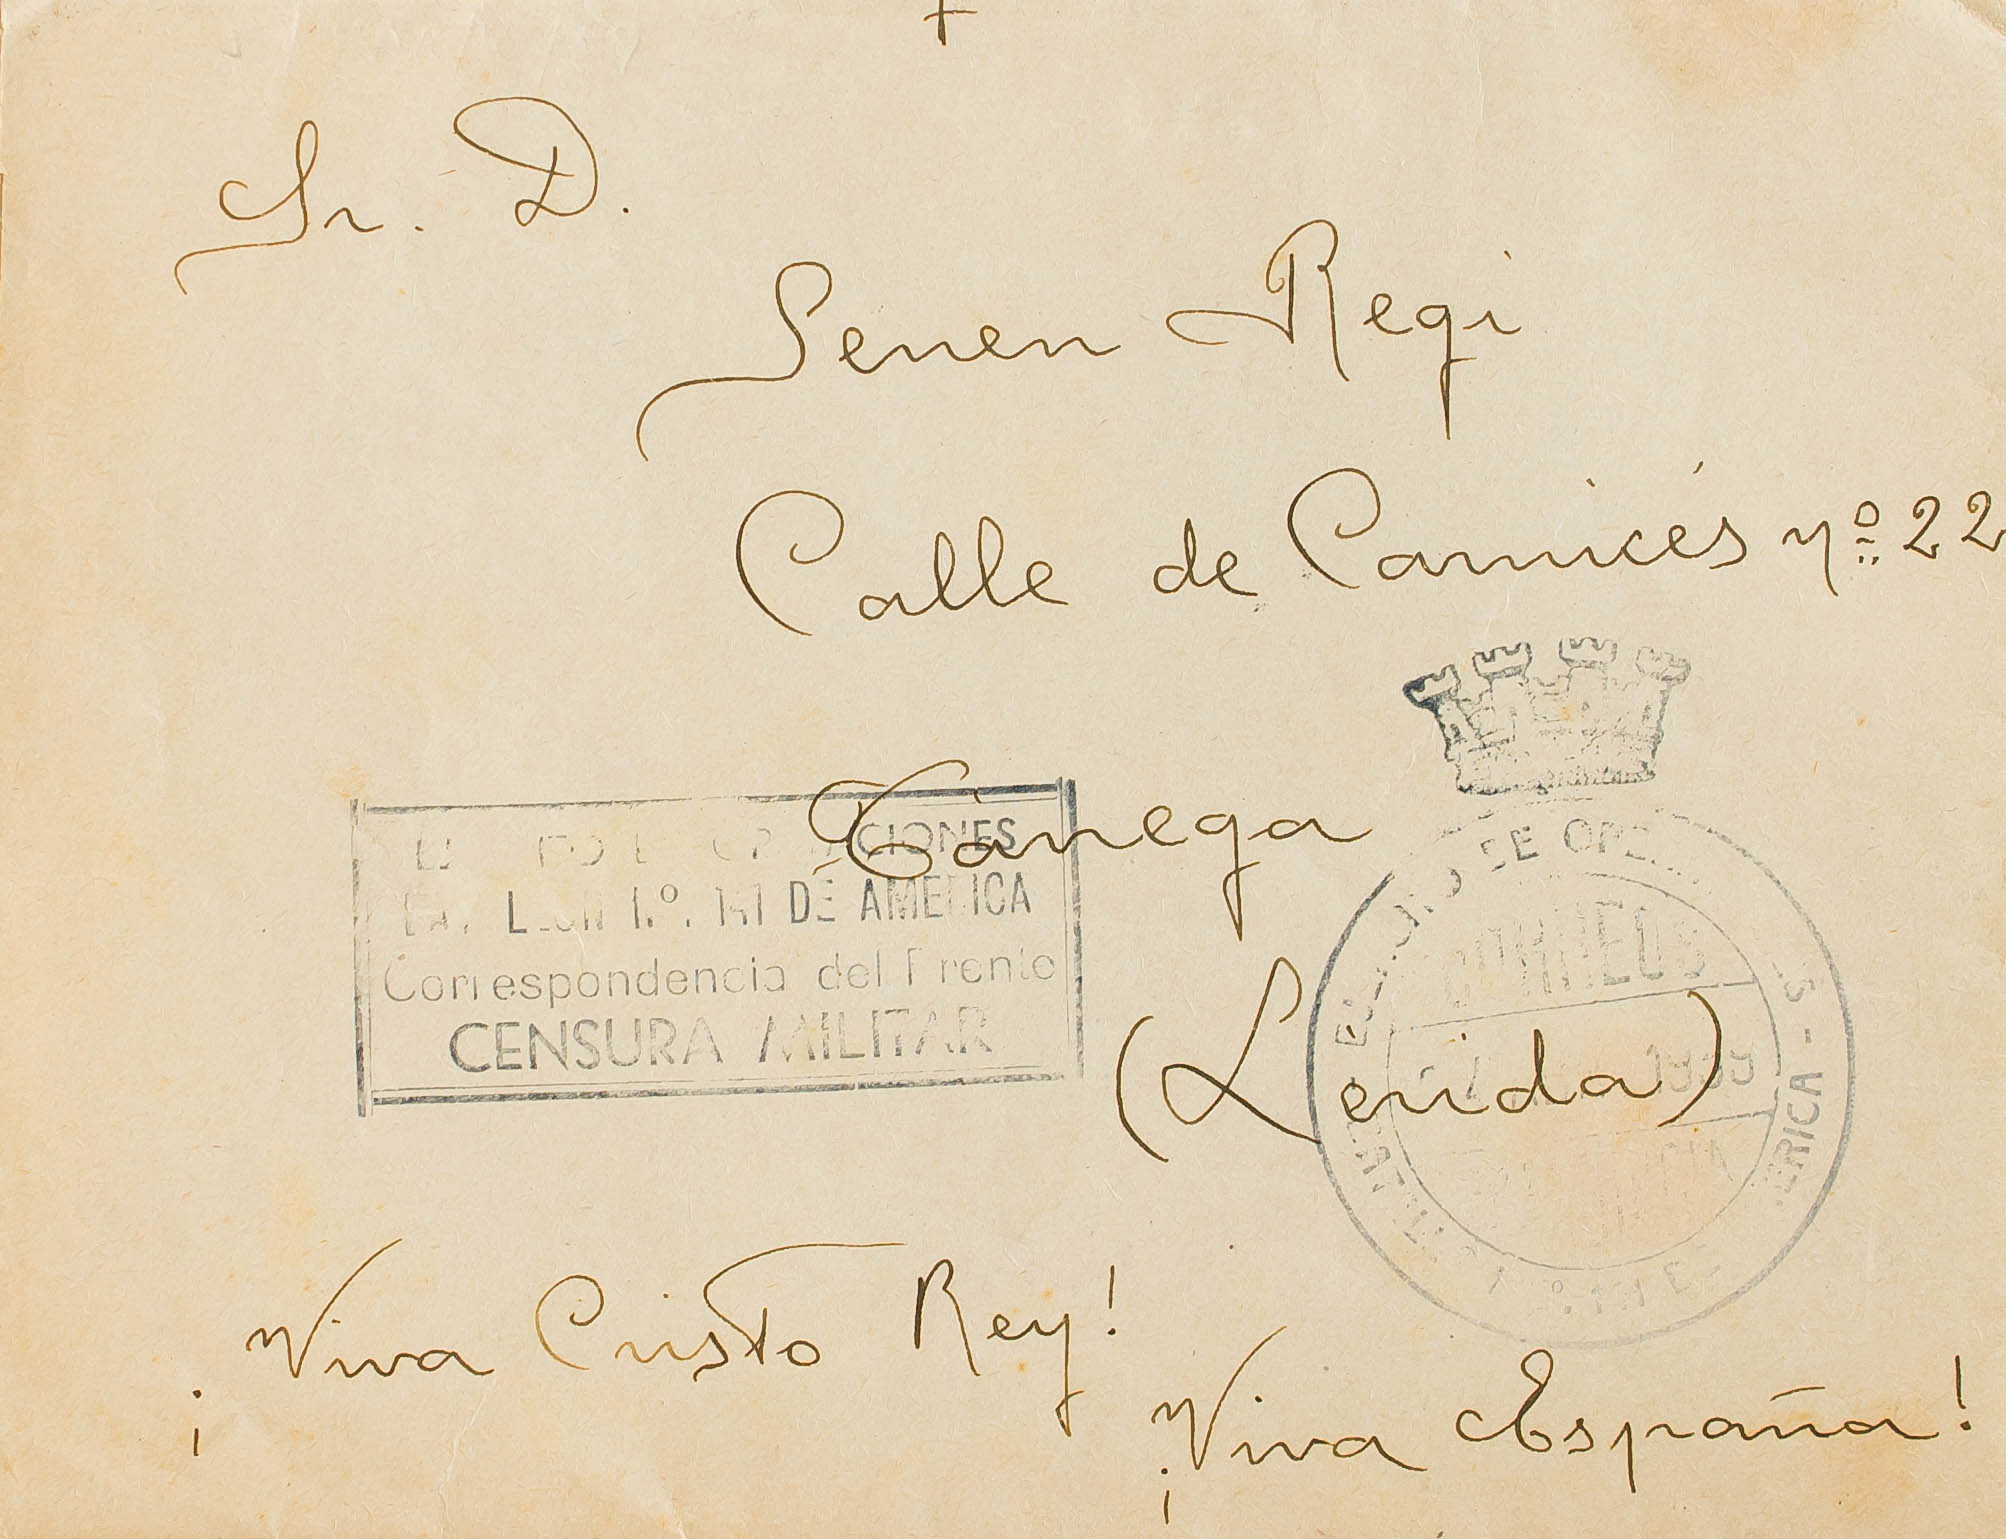 +
Sr. D.
Senen Regi
Calle de Carnicés nº 22
Tárrega
(Lerida)
CIONES
DE AMERICA
Correspondencia del Frente
CENSURA MILITAR
DE
CORREOS
1939
ERICA
¡Viva Cristo Rey!
¡Viva España!